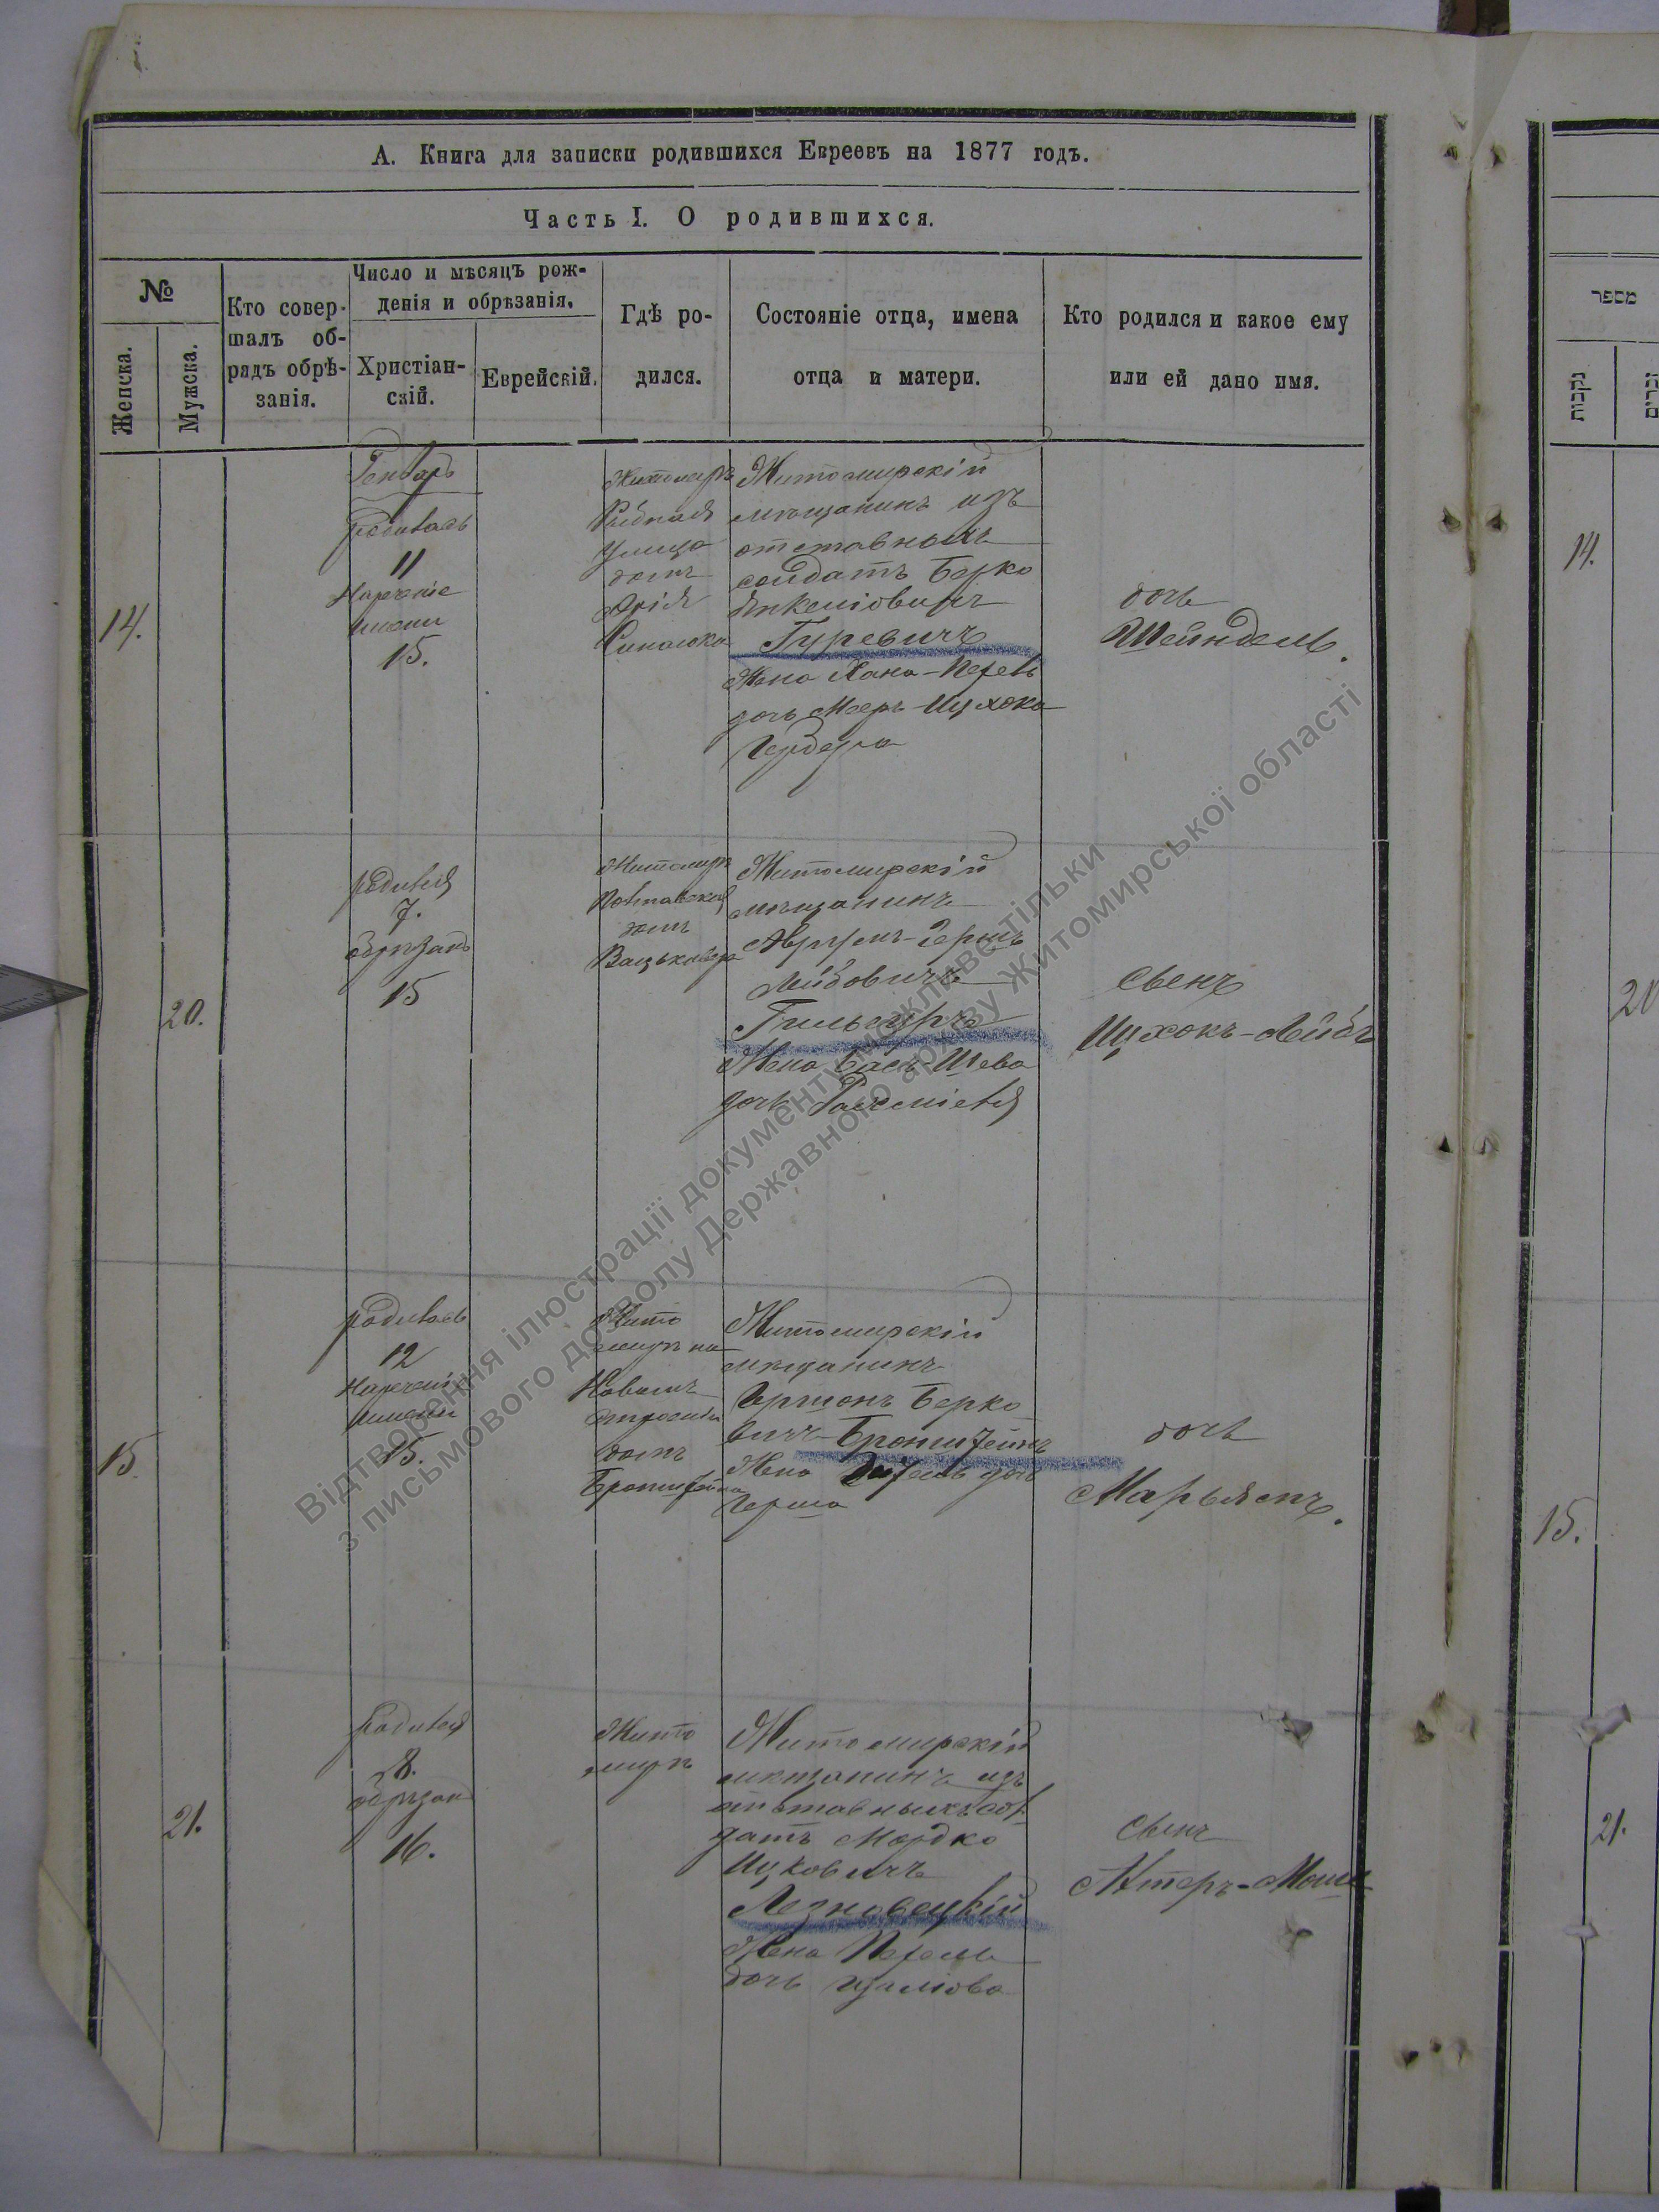 А. Книга для записки родившихся Евреевъ на 1877 годъ.
Часть I. О родившихся.
№
Женска.
Мужска.
Кто совер-
шалъ об-
рядъ обрѣ-
занія.
Число и мѣсяцъ рож-
денія и обрѣзанія.
Христіан-
скій.
Еврейскій.
Гдѣ ро-
дился.
Состояніе отца, имена
отца и матери.
Кто родился и какое ему
или ей дано имя.
14.
Генварь
родилась
11
Нареченіе
имени
15.
Житомиръ
Рыбная
улица
домъ
Житомирскій
мѣщанинъ изъ
отставныхъ
солдатъ Берко
Янкеліовичъ
Гуревичъ
Жена Хана-Перель
дочь Меера-Ицхока
Гербера
дочь
Шейндель.
20.
родился
7.
обрѣзанъ
15
Житомиръ
домъ
Житомирскій
мѣщанинъ
Аврумъ-Гершъ
Лейбовичъ
Гильпуръ
Жена Бася-Шева
дочь
сынъ
Ицхокъ-Лейбъ
15.
родилась
12
Нареченіе
имени
15.
Жито
миръ на
Новомъ
строеніи
домъ
Бронштейна
Житомирскій
мѣщанинъ
Гершонъ Берко
вичъ Бронштейнъ
Жена дочь
Герша
дочь
Марьямъ.
21.
родился
8.
обрѣзан
16.
Жито
миръ
Житомирскій
мѣщанинъ изъ
отставныхъ сол
датъ Мордко
Ицковичъ
Лезновецкій
Жена Перель
дочь
сынъ
Алтеръ-Мошк
מספר
נקבות
זכרים
14.
20
15.
21.
Відтворення ілюстрації документу можливе тільки
з письмового дозволу Державного архіву Житомирської області